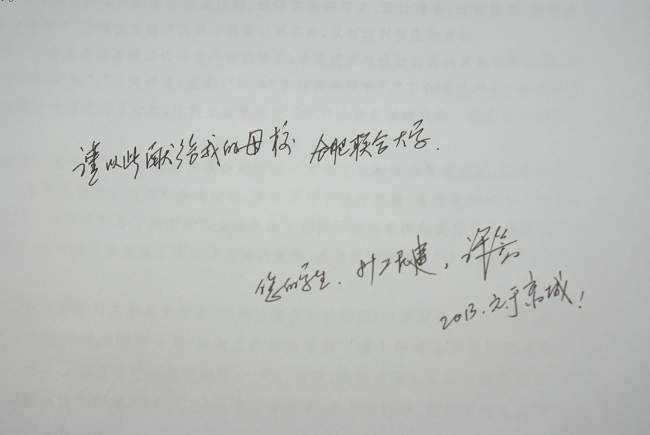 谨以此献给我的母校 合肥联合大学.
您的学生.
2013.元于京城!